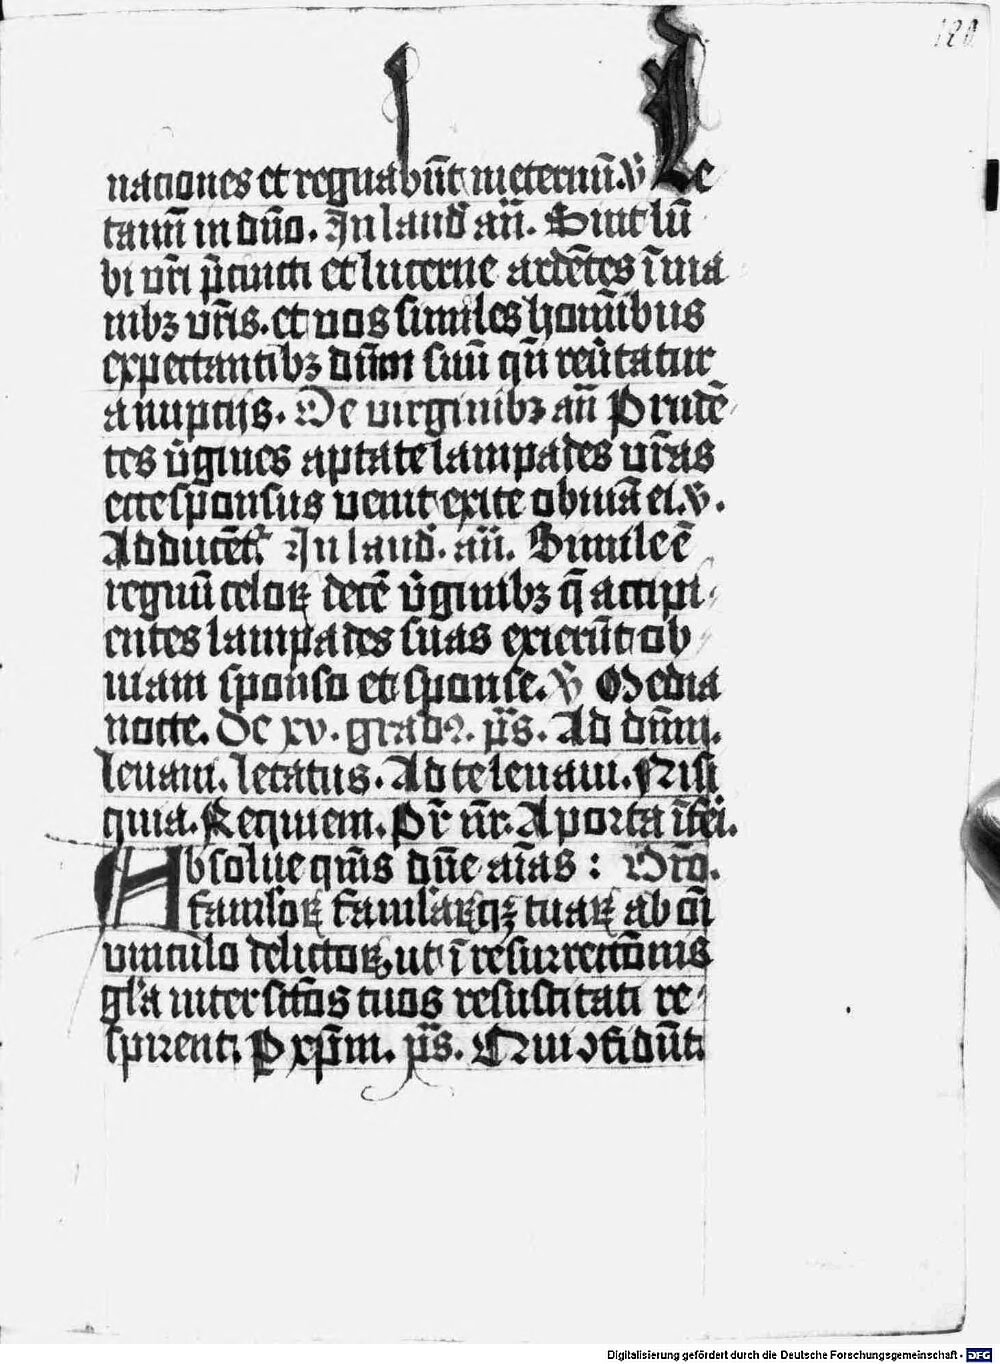 120
naciones et regnabūt ineternū. v̄ Le
tamī in dn̄o. In laud̄ an̄. Sint lū
bi vr̄i p̄cincti et lucerne ardētes ī ma
nibꝫ vr̄is. et uos similes homībus
expectantibꝫ dn̄m suū qn̄ reu̾tatur
a nuptijs. De uirginibꝫ an̄ Prudē
tes v̾gines aptate lampades vr̄as
ecce sponsus uenit exite obuiā ei. v̄.
Adducēt̾. In laud̄. an̄. Simile ē
regnū celoꝝ decē v̾ginibꝫ q̄ accipi
entes lampades suas exierūt ob
uiam sponso et sponse. v̄ Media
nocte. De xv. gradꝯ. p̄s. Ad dn̄m.
leuaui. letatus. Ad te leuaui. Nisi
quia. Requiem. Pr̄ nr̄. A porta īferi.
Absolue qm̄s dn̄e aīas : Oro.
famuloꝝ famulaꝝqꝫ tuaꝝ ab om̄i
uinculo delictoꝝ. ut ī resurrectōnis
gl̄a inter sctōs tuos resuscitati re
spirent. P xp̄m. p̄s. Qui ꝯfidūt.
Digitalisierung gefördert durch die Deutsche Forschungsgemeinschaft - DFG